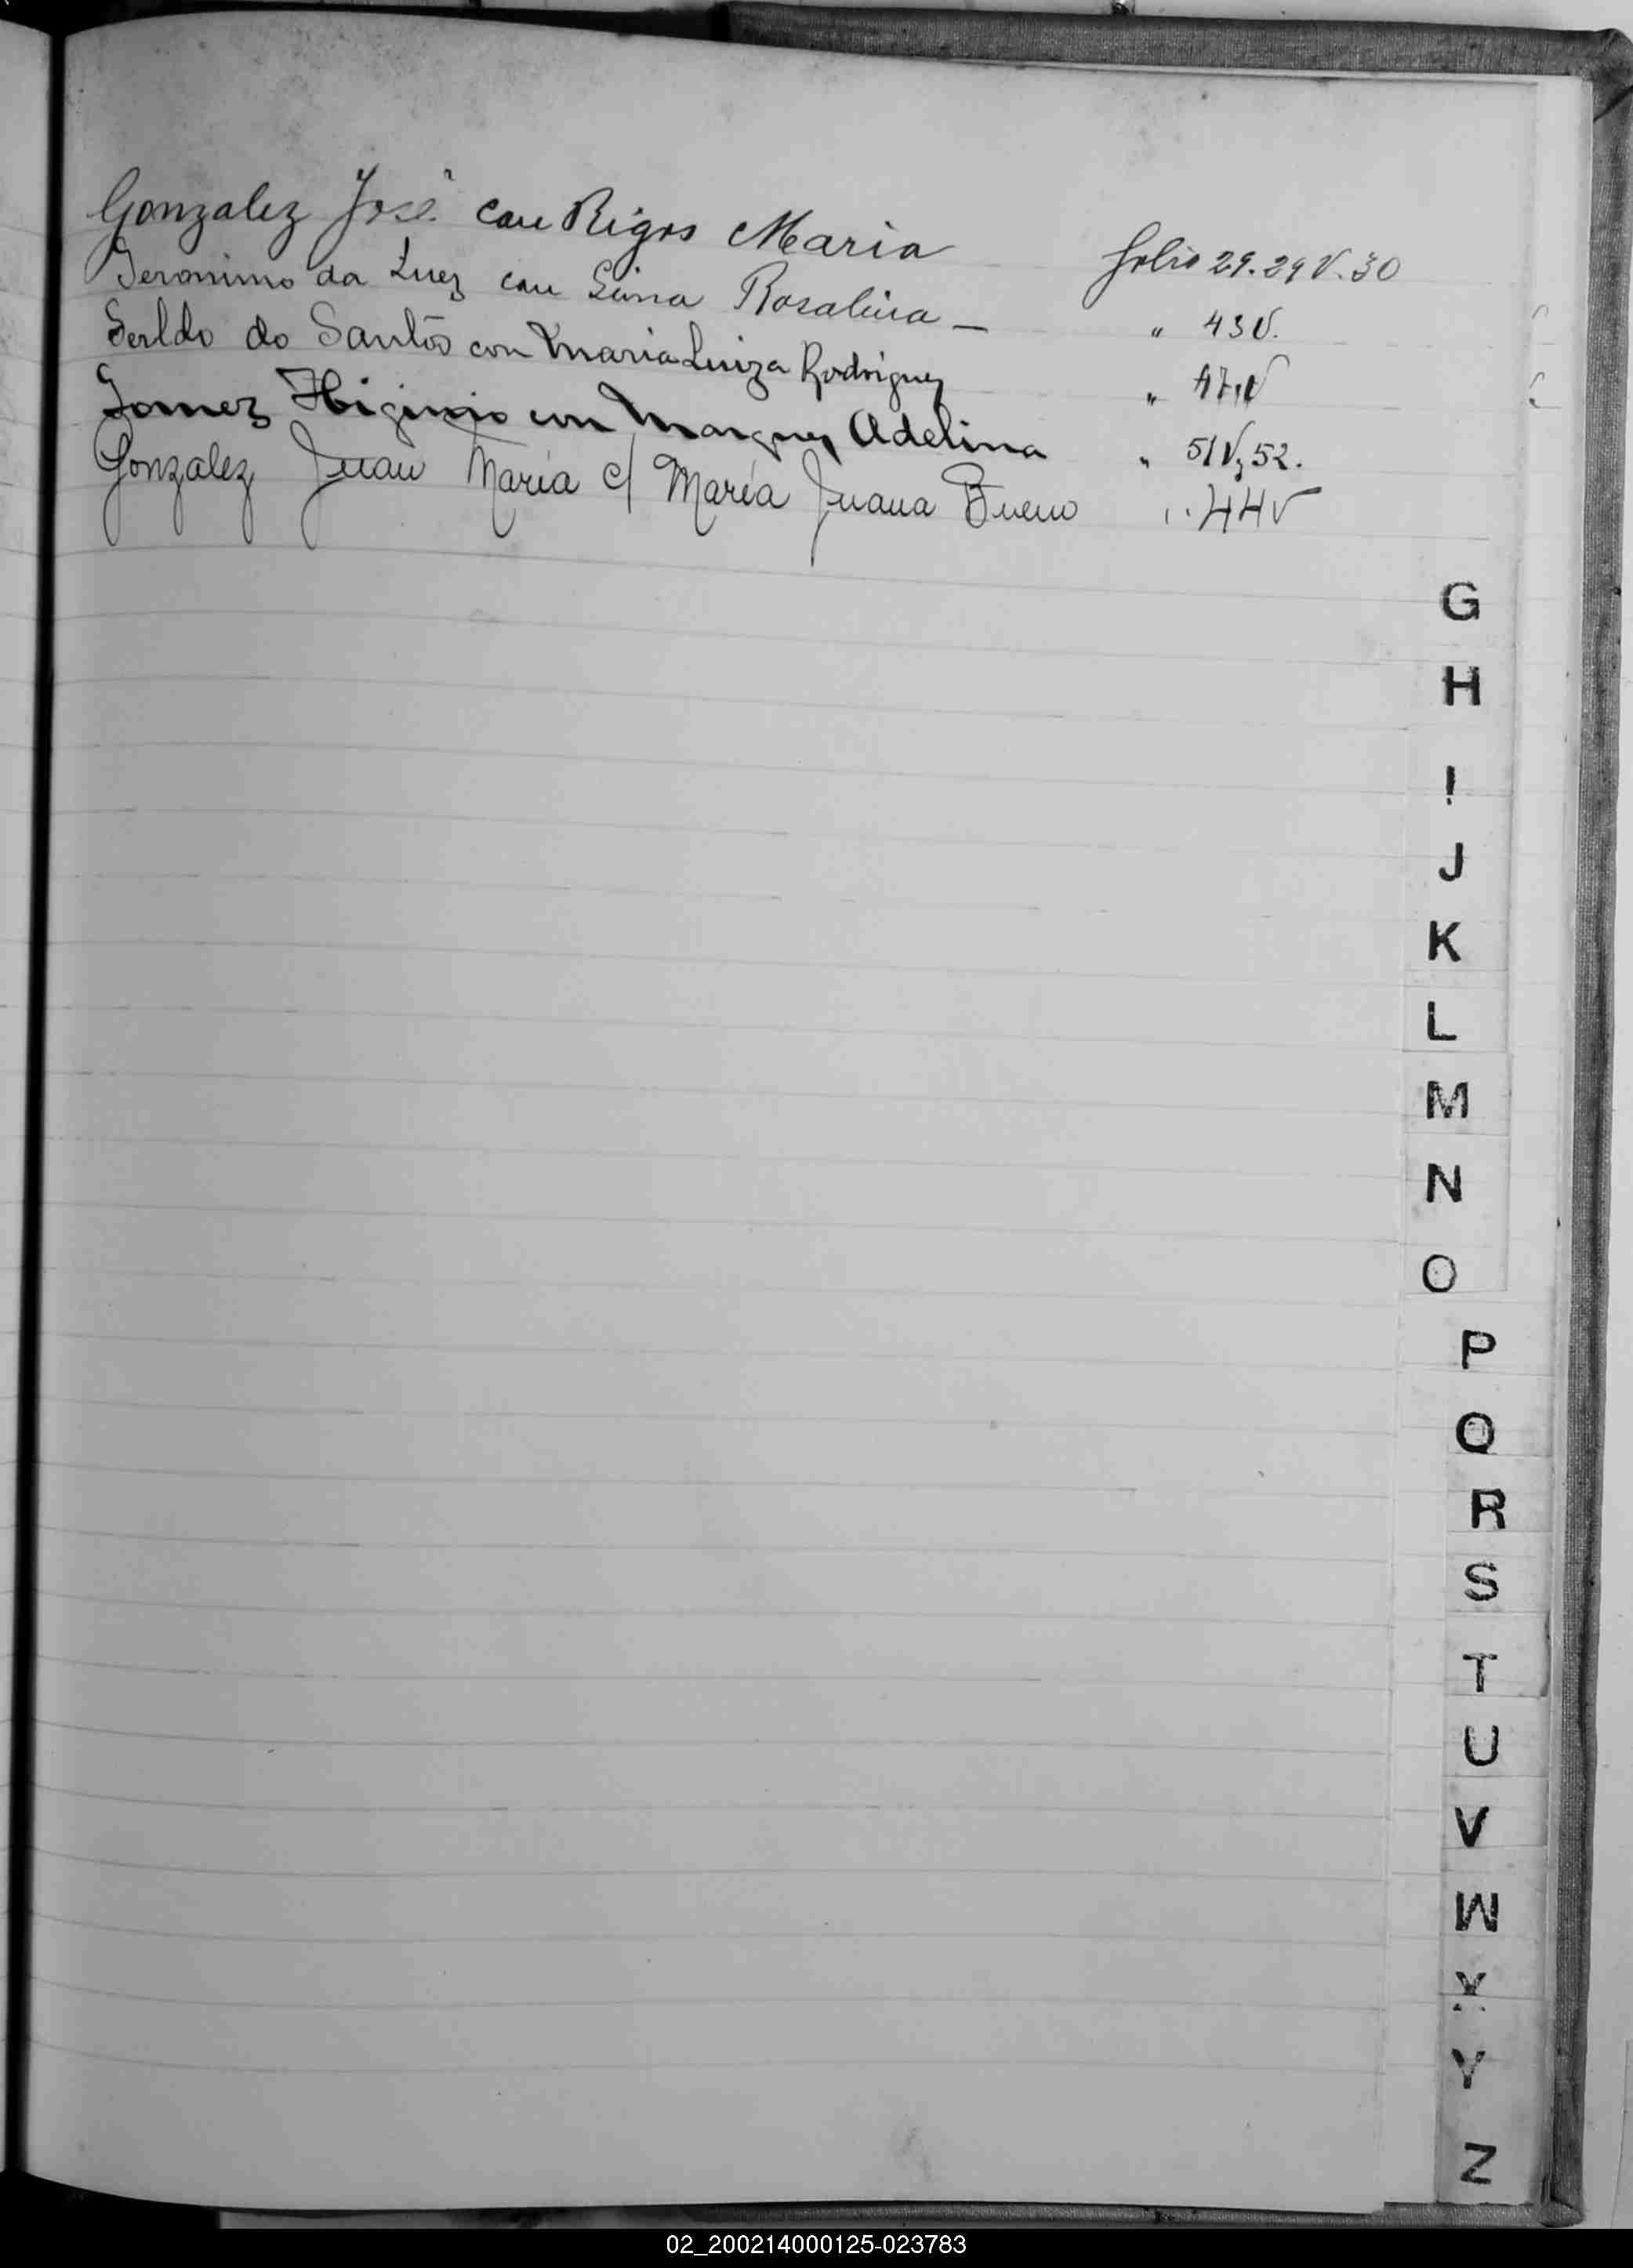 Gonzalez José con Rigos Maria folio 29. 29 V. 30
Jeronimo da Luz con Lima Rosalina — " 43 V.
do Santos con Maria Luiza Rodriguez " 47 V
Gomez Higinio con Marquez Adelina " 51V, 52.
Gonzalez Juan María c/ María Juana Bueno " 44v
G
H
I
J
K
L
M
N
O
P
Q
R
S
T
U
V
W
X
Y
Z
02_200214000125-023783